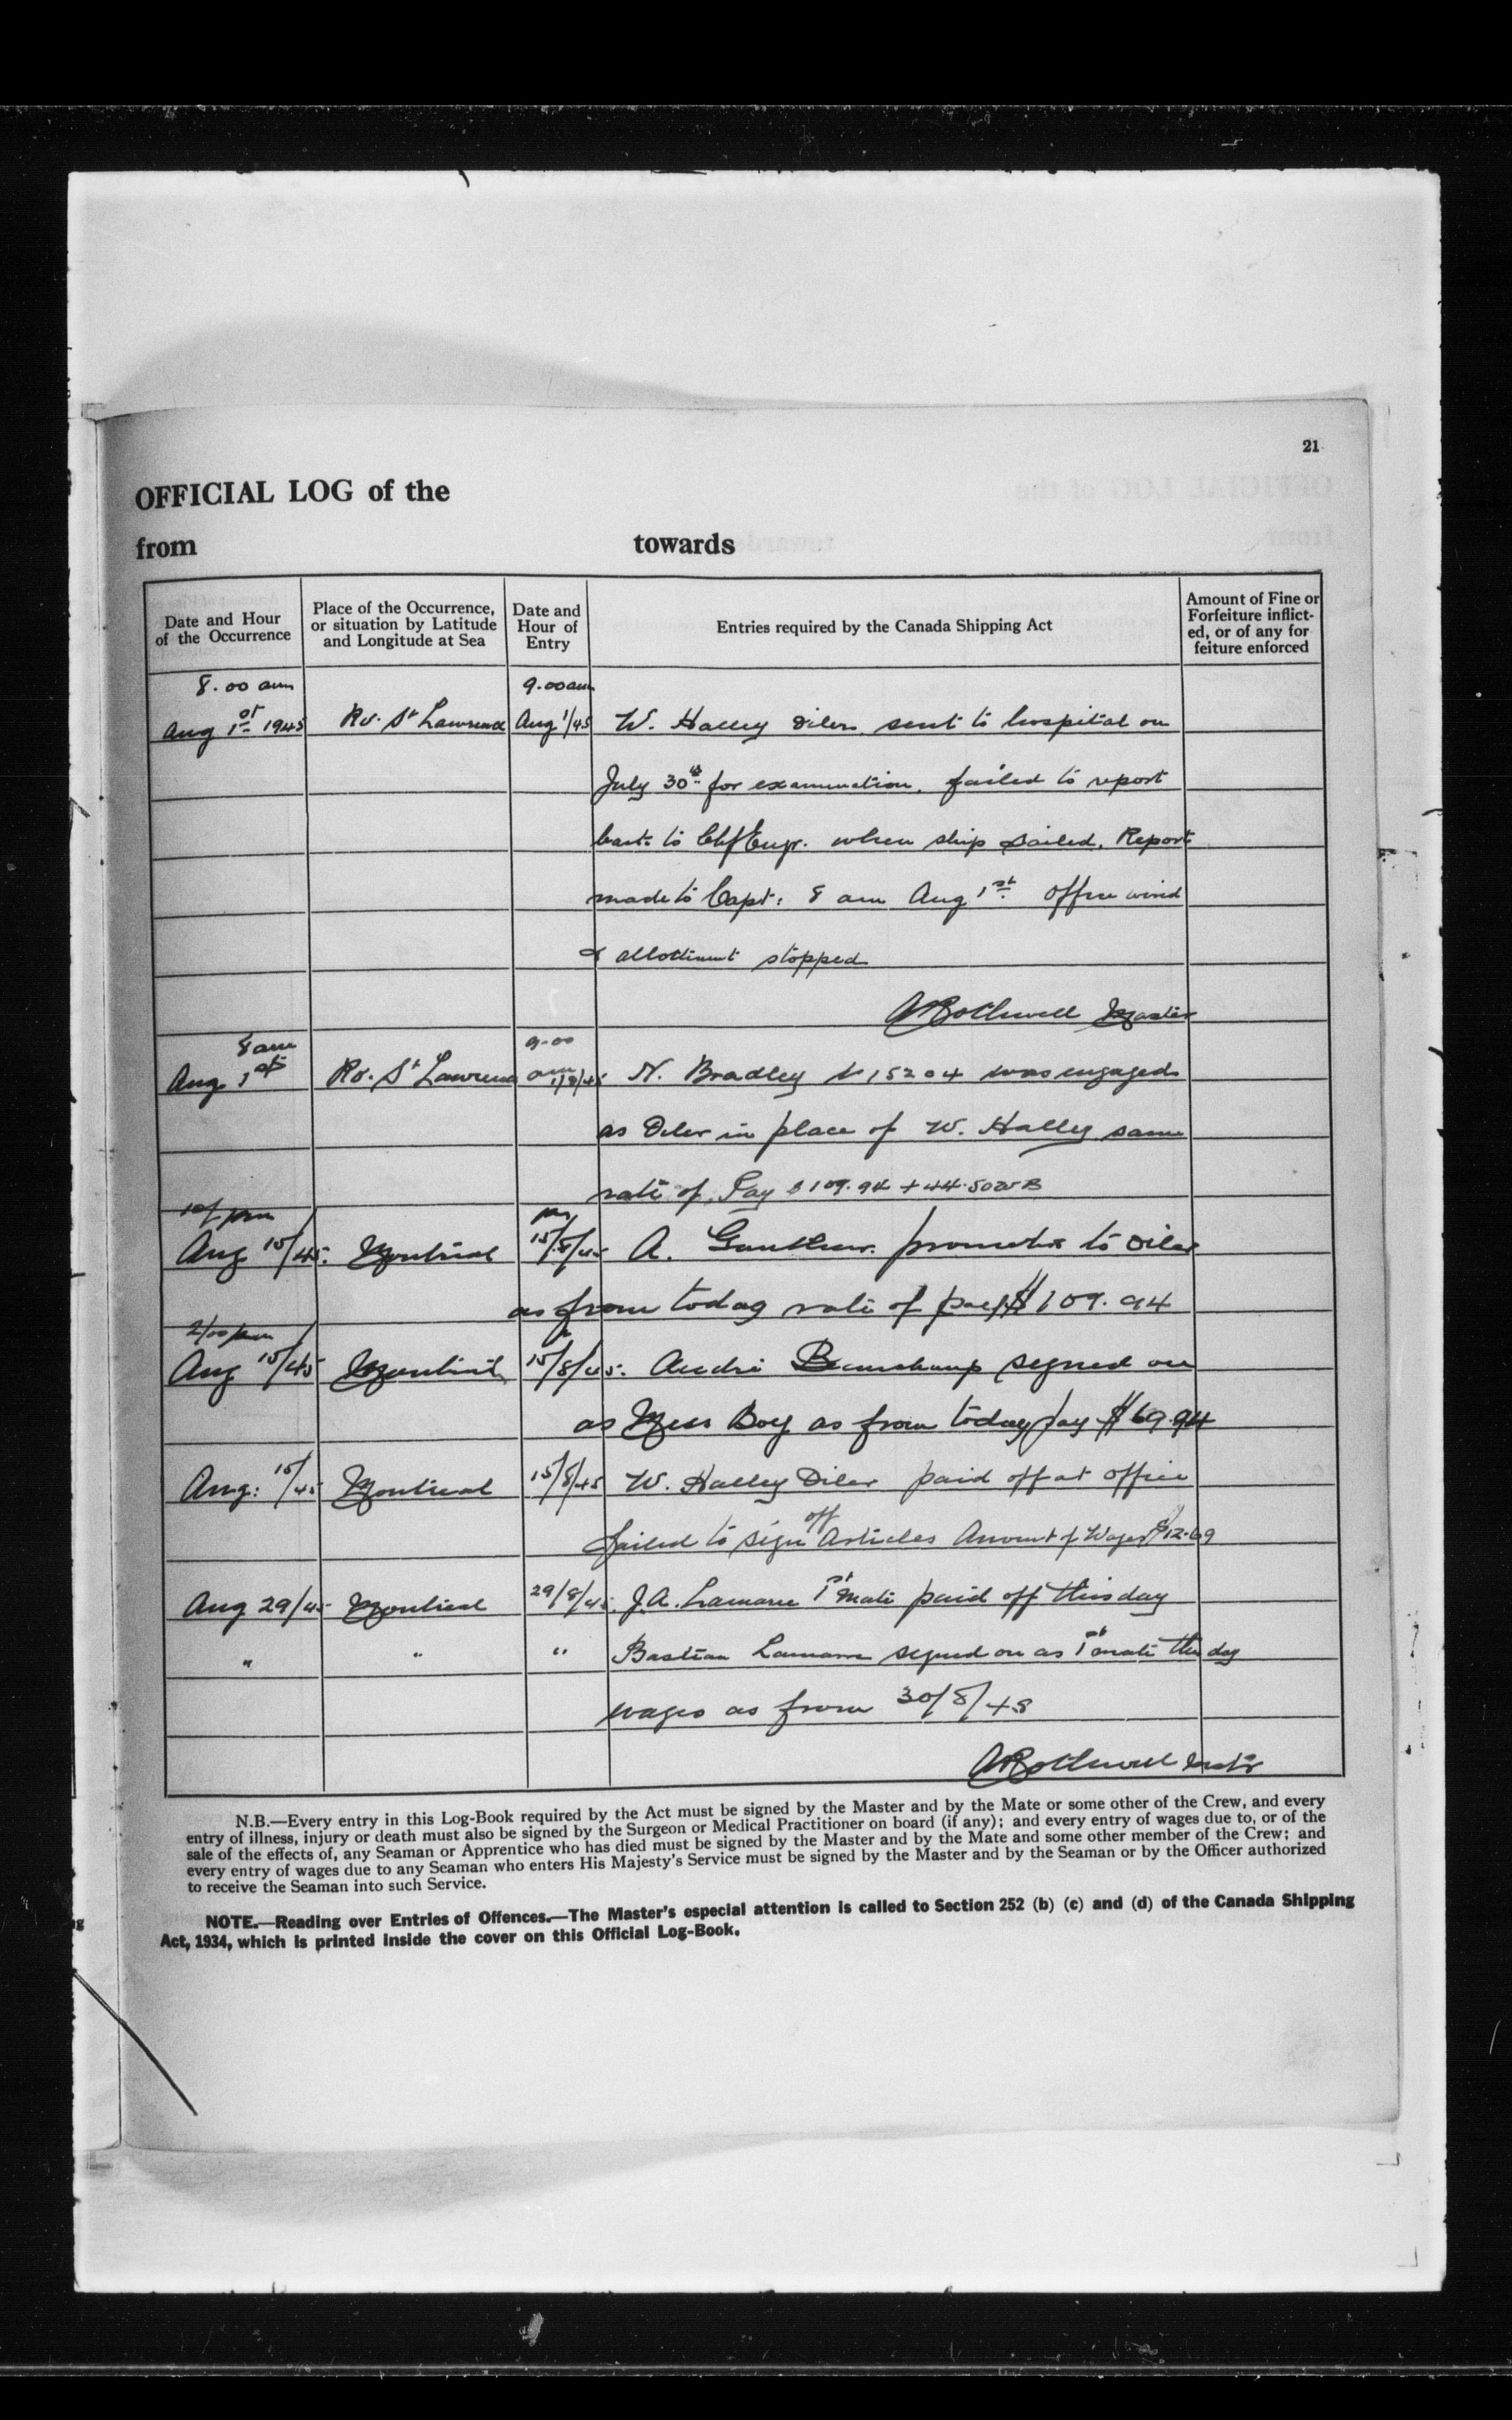 21
OFFICIAL LOG of the
from towards
Date and Hour of the Occurrence
Place of the Occurrence, or situation by Latitude and Longitude at Sea
Date and Hour of Entry
Entries required by the Canada Shipping Act
Amount of Fine or Forfeiture inflict-ed, or of any for feiture enforced
8.00 am 9.00 am
Aug 1st 1945 Rv. St Lawrence Aug 1/45 W. Halley Oiler sent to hospital on
July 30th for examination, failed to report
back to Chf Engr. when ship sailed. Report
made to Capt: 8 am Aug 1st Office wired
& allottment stopped
A Bothwell Master
8 am 9-00
Aug 1st Rv. St Lawrence am 1/8/45 N. Bradley 15204 was engaged
as Oiler in place of W. Halley same
rate of Pay $109.94 + 44.50 WB
pm pm
Aug 15/45. Montreal 15/8/45 A. Gauthier promoted to Oiler
as from today rate of pay $109.94
2/00 pm
Aug 15/45 Montreal 15/8/45. Andre Beauchamp signed on
as Mess Boy as from today pay $69.94
Aug: 15/45 Montreal 15/8/45 W. Halley Oiler paid off at office
failed to sign off Articles Amount of Wages $12.69
Aug 29/45 Montreal 29/8/45. J.A. Lamarre 1st Mate paid off this day
" " " Bastian Lamarre signed on as 1st mate this day
wages as from 30/8/48
A Bothwell Master
N.B.—Every entry in this Log-Book required by the Act must be signed by the Master and by the Mate or some other of the Crew, and every
entry of illness, injury or death must also be signed by the Surgeon or Medical Practitioner on board (if any); and every entry of wages due to, or of the
sale of the effects of, any Seaman or Apprentice who has died must be signed by the Master and by the Mate and some other member of the Crew; and
every entry of wages due to any Seaman who enters His Majesty's Service must be signed by the Master and by the Seaman or by the Officer authorized
to receive the Seaman into such Service.
NOTE.—Reading over Entries of Offences.—The Master's especial attention is called to Section 252 (b) (c) and (d) of the Canada Shipping
Act, 1934, which is printed inside the cover on this Official Log-Book.